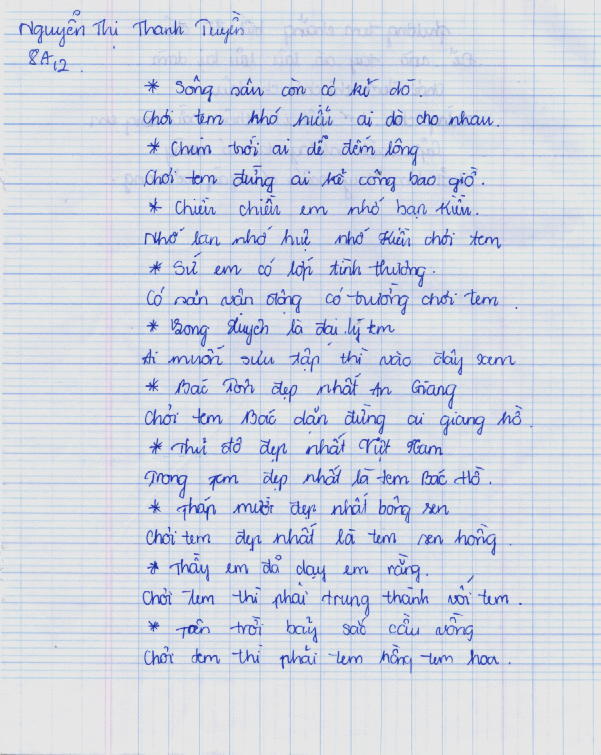 Nguyễn Thị Thanh Tuyền
8A12
* Sông sân còn có kẻ dò
Chơi tem khó hiểu ai dò cho nhau.
* Chim trời ai dễ đếm lông
Chơi tem đừng ai kể công bao giờ.
* Chiều chiều em nhớ bạn Kiều.
Nhớ lan nhớ huệ nhớ Kiều chơi tem
* Sứ em có lợi tình thương.
Có sân vân động có trường chơi tem.
* Bong là đại lý tem
Ai muốn sưu tập thì vào đây xem
* Bác Tôn đẹp nhất An Giang
Chơi tem Bác dặn đừng ai giang hồ.
* Thủ đô đẹp nhất Việt Nam
Trong tem đẹp nhất là tem Bác Hồ.
* Tháp mười đẹp nhất bông sen
Chơi tem đẹp nhất là tem sen hồng.
* Thầy em đã dạy em rằng.
Chơi tem thì phải trung thành với tem.
* Trên trời bảy sắc cầu vồng
Chơi tem thì phải tem hồng tem hoa.